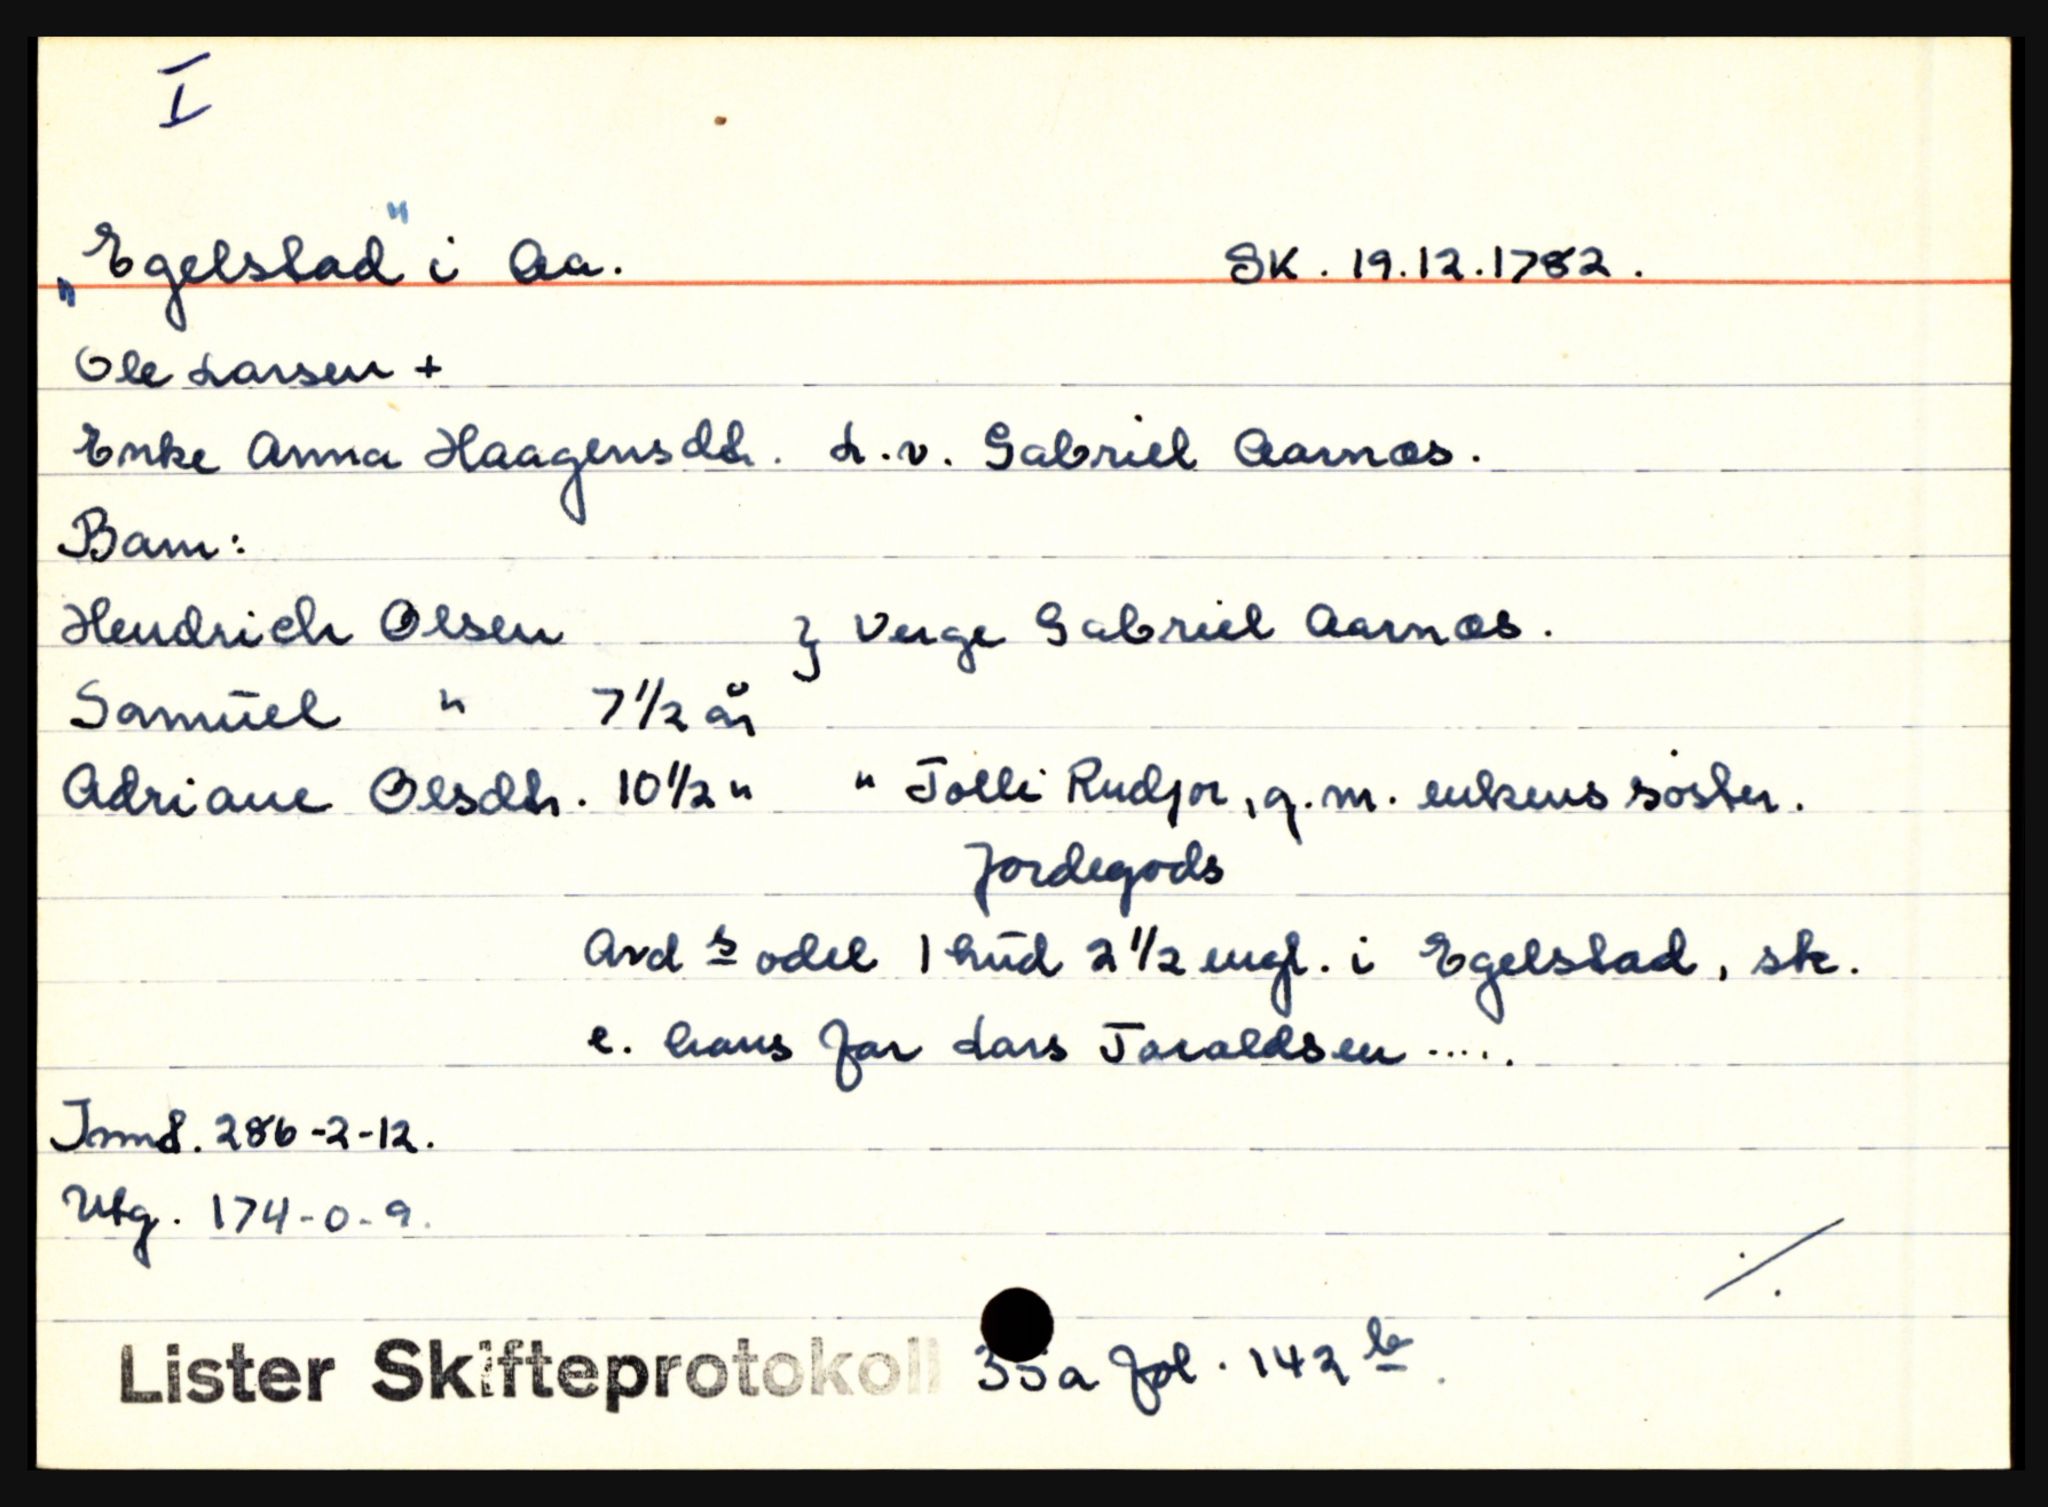 I
"Egelstad" i Aa. SK. 19.12.1782.
Ole Larsen +
Enke Anna Haagensdtr. L.v. Gabriel Aarnæs.
Barn:
Hendrich Olsen } Verge Gabriel Aarnæs.
Samuel " 7 1/2 år
Adriane Olsdtr. 10 1/2 " " Tolli Rudjor, g.m. enkens søster.
Jordegods
Avd s odel 1 hud 2 1/2 engl. i Egelstad, sk.
e. hans far Lars Taraldsen .....
Innt. 286-2-12.
Utg. 174-0-9.
./.
Lister Skifteprotokoll 35a fol. 142 b.